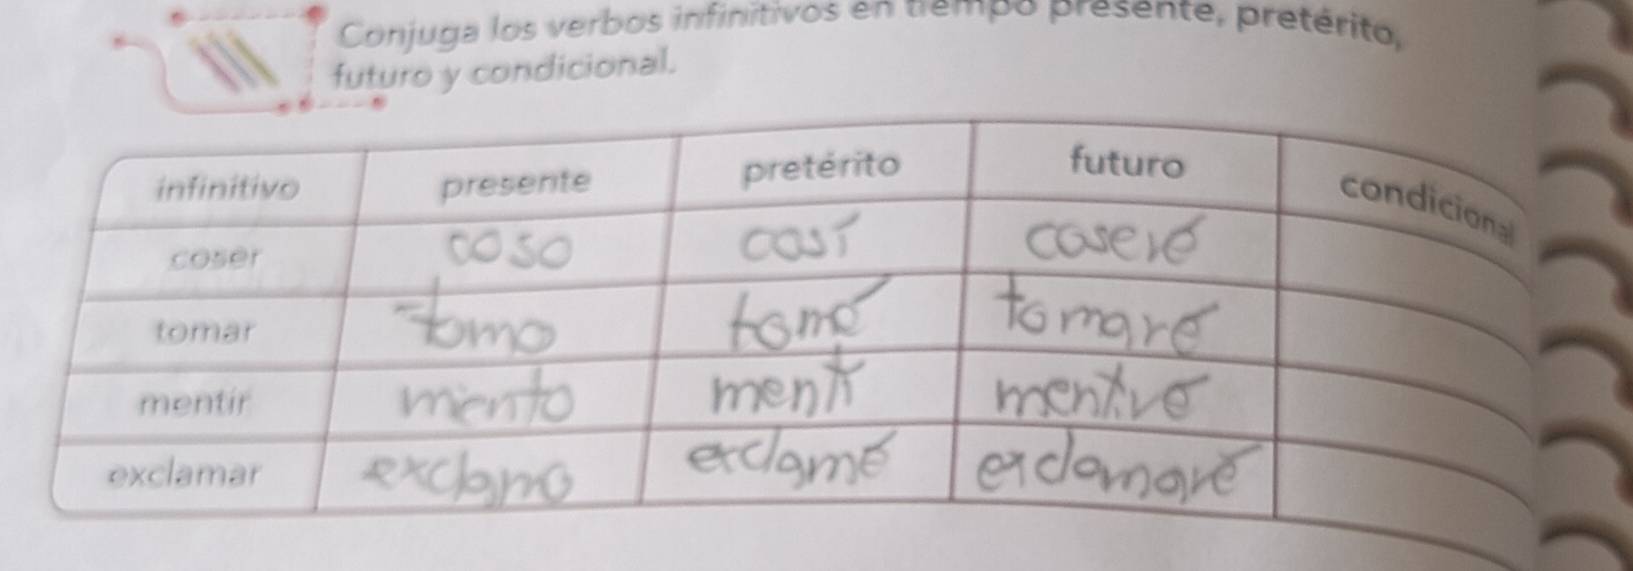 Conjuga los verbos infinitivos en tiempo presente, pretérito,
futuro y condicional.
infinitivo presente pretérito futuro condicional
coser coso cosí coseré
tomar tomo tomé tomaré
mentir miento mentí mentiré
exclamar exclamo exclamé exclamaré